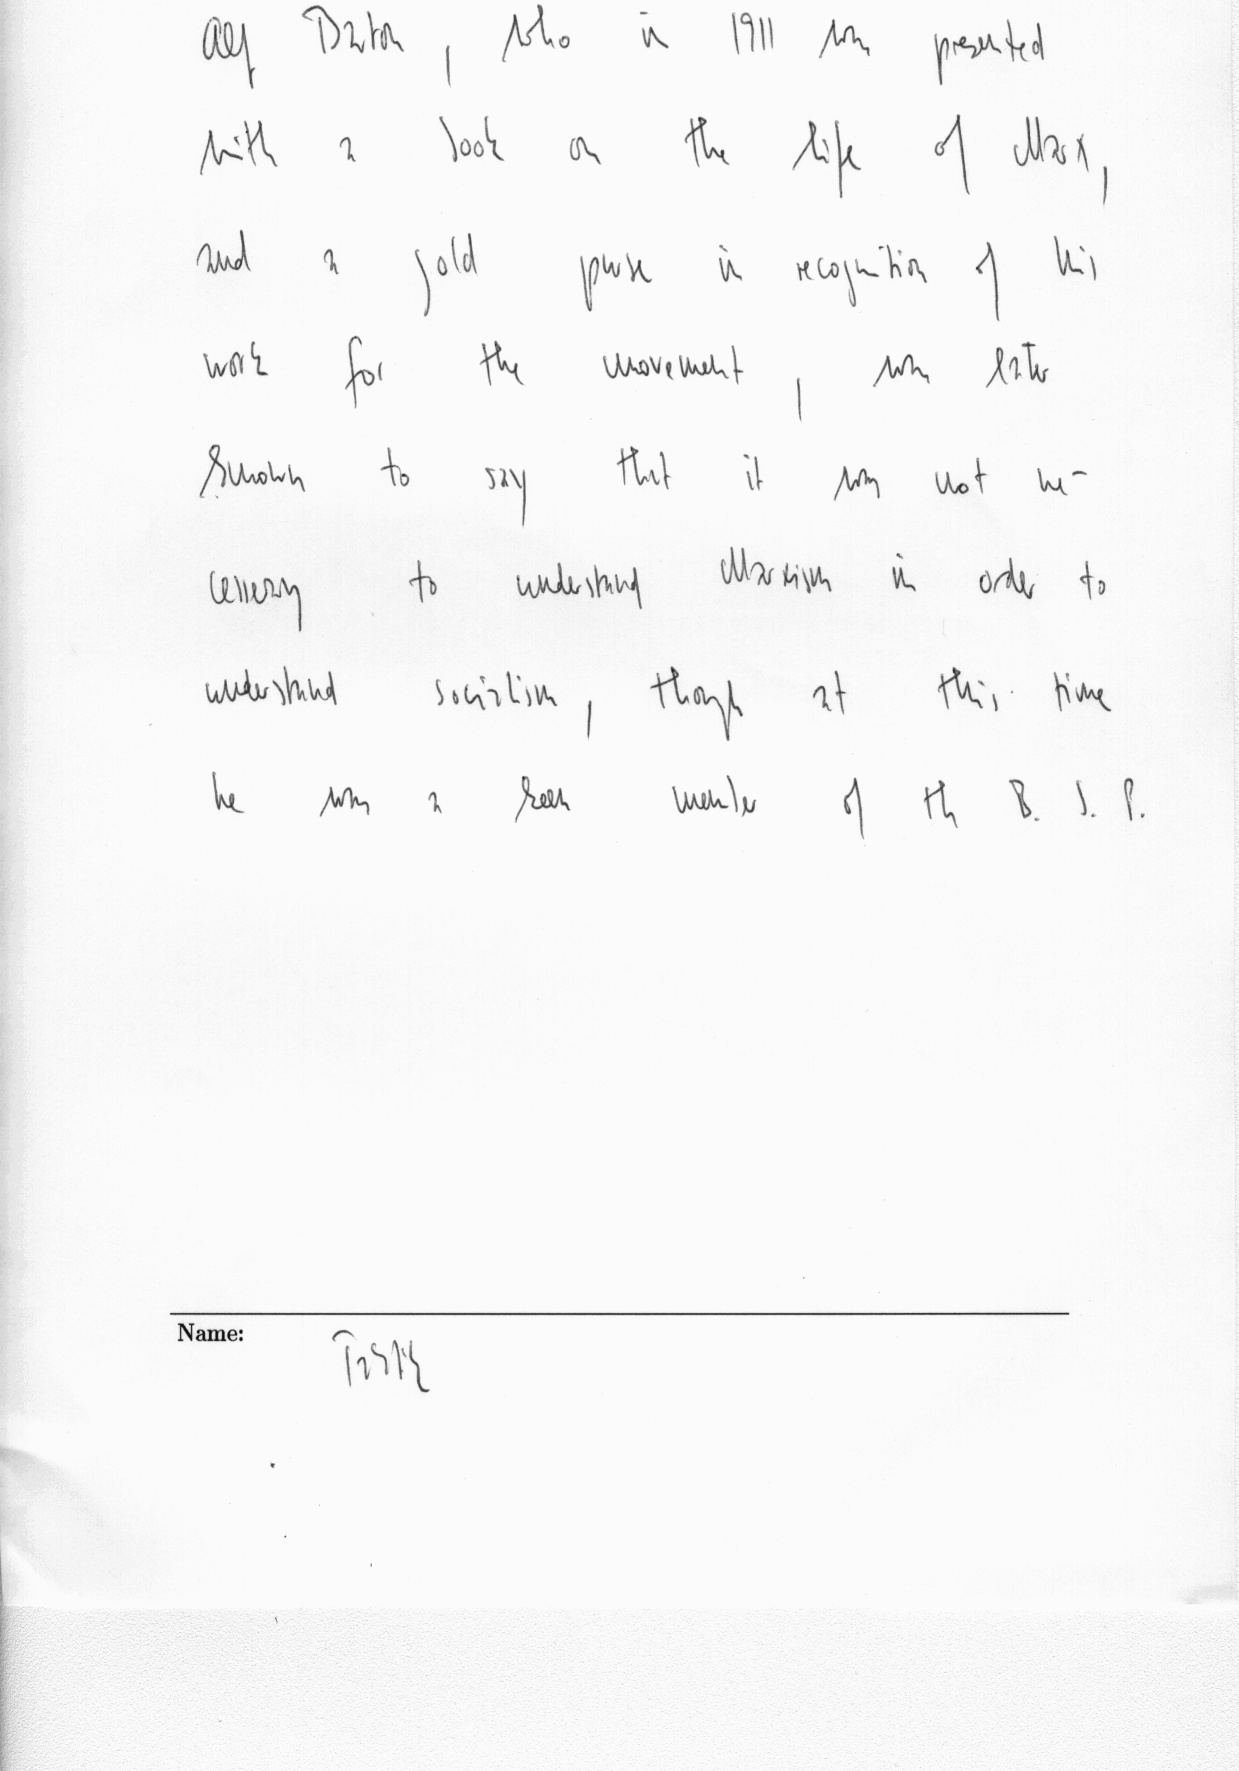 Alf Barton, who in 1911 was presented
with a book on the life of Marx,
and a gold purse in recognition of his
work for the movement, was later
known to say that it was not ne-
cessary to understand Marxism in order to
understand socialism, though at this time
he was a keen member of the B. S. P.
Name: